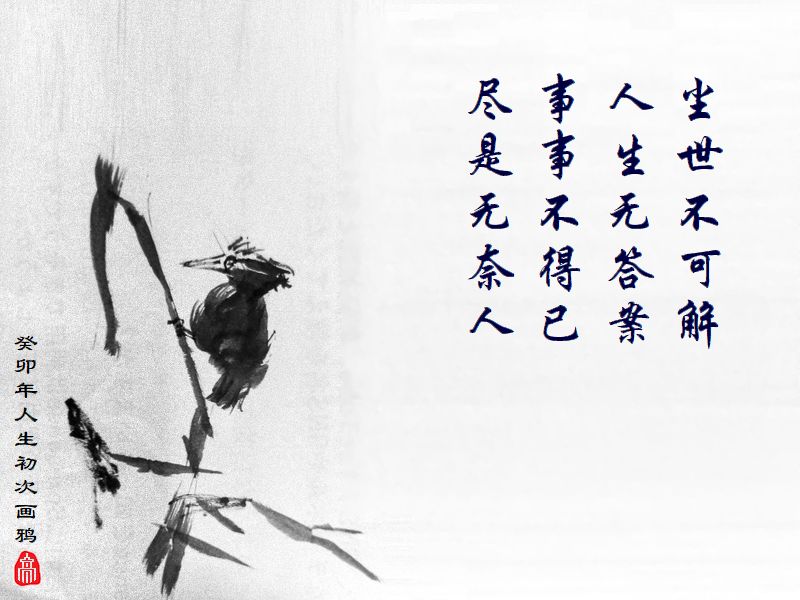 尘世不可解
人生无答案
事事不得已
尽是无奈人
癸卯年人生初次画鸦